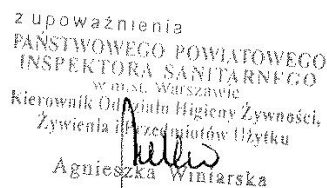 z upoważnienia
PAŃSTWOWEGO POWIATOWEGO
INSPEKTORA SANITARNEGO
w m.st. Warszawie
Kierownik Oddziału Higieny Żywności,
Żywienia i Przedmiotów Użytku
Agnieszka Winiarska